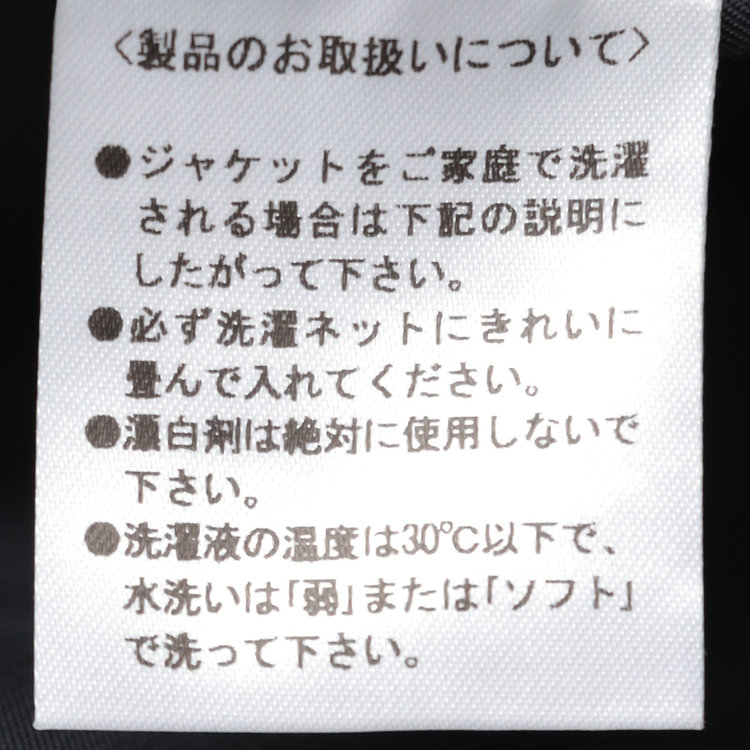 〈製品のお取扱いについて〉
●ジャケットをご家庭で洗濯
される場合は下記の説明に
したがって下さい。
●必ず洗濯ネットにきれいに
畳んで入れてください。
●漂白剤は絶対に使用しないで
下さい。
●洗濯液の温度は30℃以下で、
水洗いは「弱」または「ソフト」
で洗って下さい。